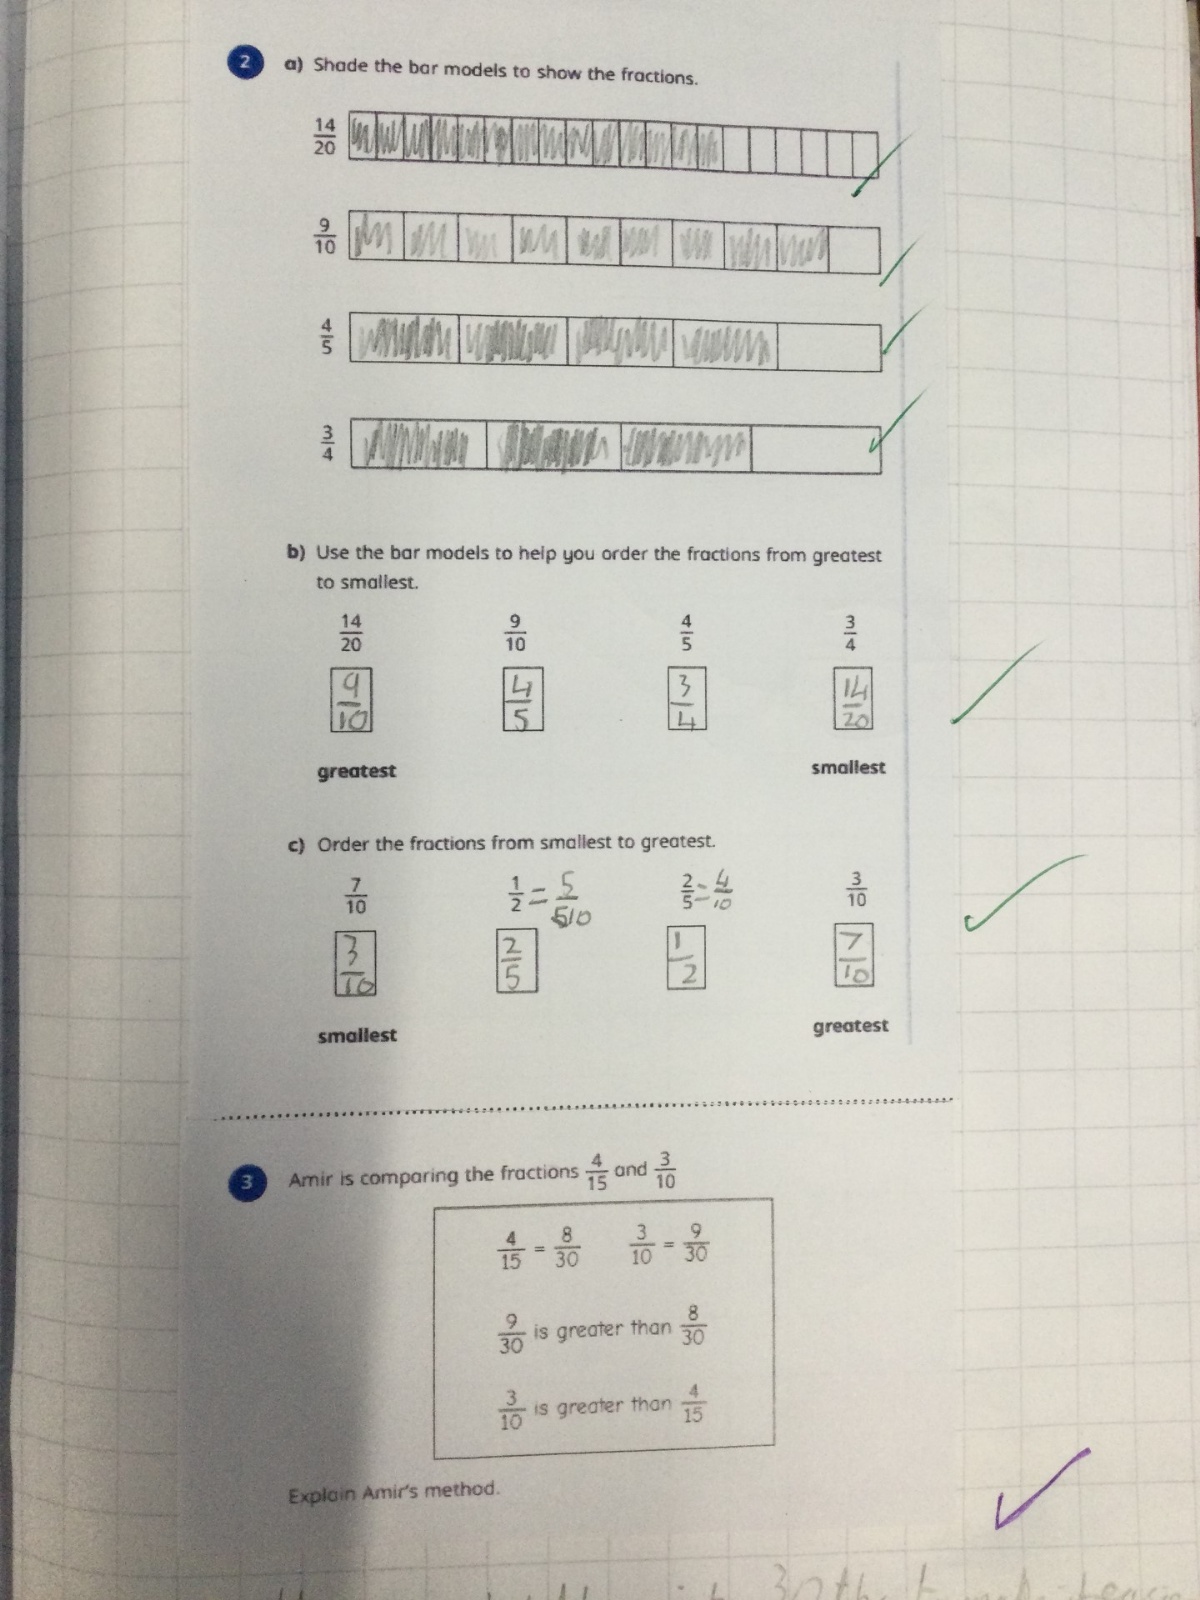 2 a) Shade the bar models to show the fractions.
14/20
9/10
4/5
3/4
b) Use the bar models to help you order the fractions from greatest
to smallest.
14/20 9/10 4/5 3/4
9/10 4/5 3/4 14/20
greatest smallest
c) Order the fractions from smallest to greatest.
7/10 1/2 = 5/10 2/5 = 4/10 3/10
3/10 2/5 1/2 7/10
smallest greatest
3 Amir is comparing the fractions 4/15 and 3/10
4/15 = 8/30 3/10 = 9/30
9/30 is greater than 8/30
3/10 is greater than 4/15
Explain Amir's method.